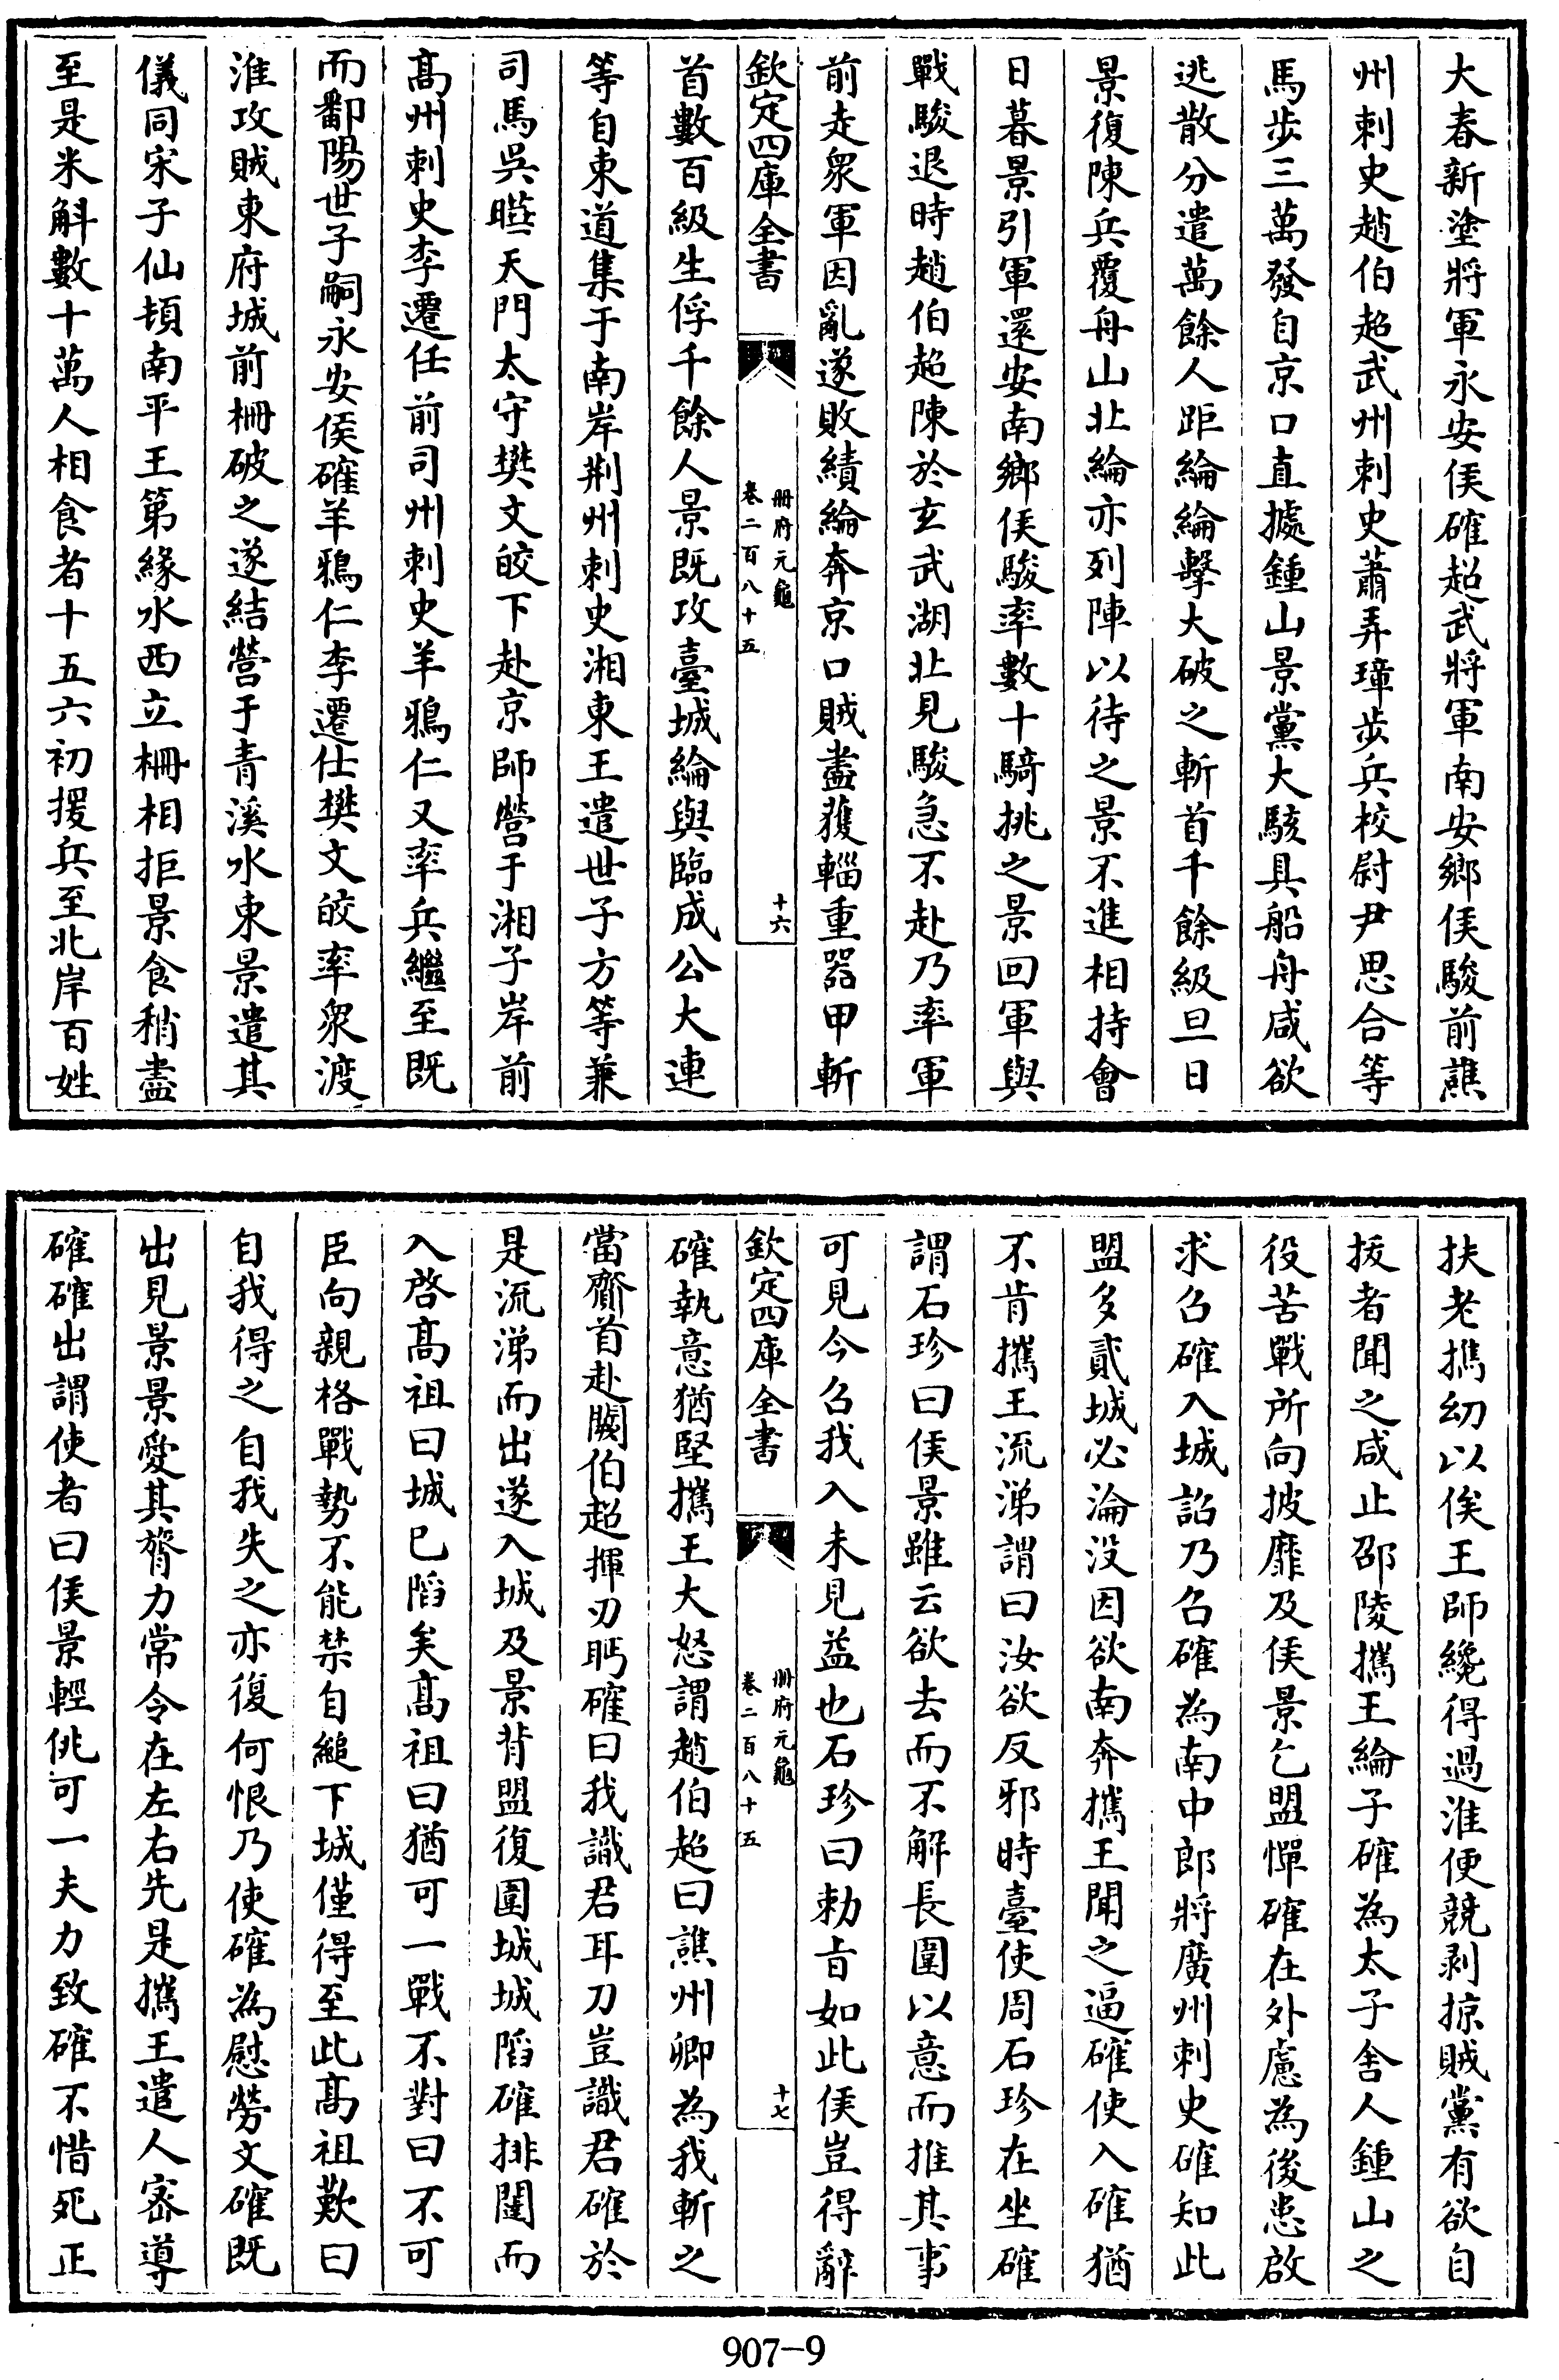 大春新塗將軍永安侯確超武將軍南安鄉侯駿前譙
州刺史趙伯超武州刺史蕭弄璋步兵校尉尹思合等
馬步三萬發自京口直據鍾山景黨大駭具船舟咸欲
逃散分遣萬餘人距綸綸擊大破之斬首千餘級旦日
景復陳兵覆舟山北綸亦列陣以待之景不進相持會
日暮景引軍還安南鄉侯駿率數十騎挑之景回軍與
戰駿退時趙伯超陳於玄武湖北見駿急不赴乃率軍
前走衆軍因亂遂敗績綸奔京口賊盡獲輜重器甲斬
欽定四庫全書
冊府元龜
卷二百八十五
十六
首數百級生俘千餘人景既攻臺城綸與臨成公大連
等自東道集于南岸荆州刺史湘東王遣世子方等兼
司馬吳曄天門太守樊文皎下赴京師營于湘子岸前
髙州刺史李遷任前司州刺史羊鴉仁又率兵繼至既
而鄱陽世子嗣永安侯確羊鴉仁李遷仕樊文皎率衆渡
淮攻賊東府城前柵破之遂結營于青溪水東景遣其
儀同宋子仙頓南平王第緣水西立柵相拒景食稍盡
至是米斛數十萬人相食者十五六初援兵至北岸百姓
扶老攜幼以俟王師纔得過淮便競剥掠賊黨有欲自
拔者聞之咸止邵陵攜王綸子確為太子舍人鍾山之
役苦戰所向披靡及侯景乞盟憚確在外慮為後患啟
求召確入城詔乃召確為南中郎將廣州刺史確知此
盟多貳城必淪没因欲南奔攜王聞之逼確使入確猶
不肯攜王流涕謂曰汝欲反邪時臺使周石珍在坐確
謂石珍曰侯景雖云欲去而不解長圍以意而推其事
可見今召我入未見益也石珍曰勅旨如此侯豈得辭
欽定四庫全書
冊府元龜
卷二百八十五
十七
確執意猶堅攜王大怒謂趙伯超曰譙州卿為我斬之
當齎首赴闕伯超揮刃眄確曰我識君耳刀豈識君確於
是流涕而出遂入城及景背盟復圍城城陷確排闥而
入啓髙祖曰城已陷矣髙祖曰猶可一戰不對曰不可
臣向親格戰勢不能禁自縋下城僅得至此髙祖歎曰
自我得之自我失之亦復何恨乃使確為慰勞文確既
出見景景愛其膂力常令在左右先是攜王遣人密導
確確出謂使者曰侯景輕佻可一夫力致確不惜死正
907-9